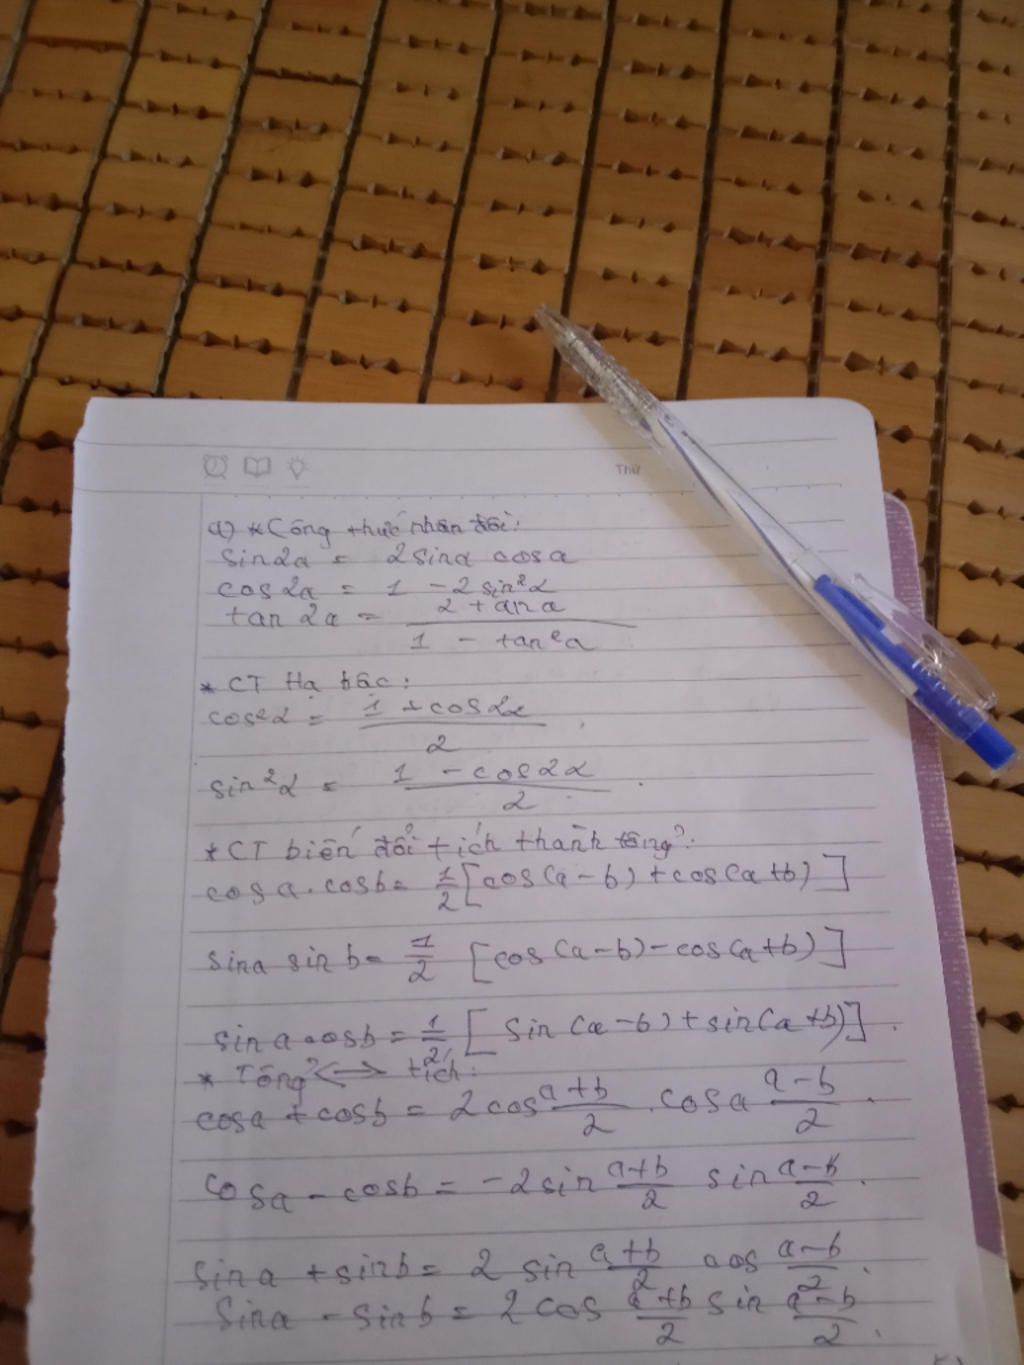 Thứ
a) * Công thức nhân đôi:
sin2a = 2sina cosa
cos2a = 1 - 2sin²α
tan 2a = \frac{2 tan a}{1 - tan²a}
* CT Hạ bậc:
cos²α = \frac{1 + cos2α}{2}
sin²α = \frac{1 - cos2α}{2}
* CT biến đổi tích thành tổng:
cosa.cosb = \frac{1}{2}[cos(a-b)+cos(a+b)]
sina sinb = \frac{1}{2} [cos(a-b)-cos(a+b)]
sina cosb = \frac{1}{2} [sin(a-b)+sin(a+b)].
* Tổng <-> tích:
cosa + cosb = 2cos\frac{a+b}{2}.cosa\frac{a-b}{2}.
cosa - cosb = -2sin\frac{a+b}{2} sin\frac{a-b}{2}.
sina + sinb = 2 sin\frac{a+b}{2} cos\frac{a-b}{2}.
Sina - sinb = 2cos\frac{a+b}{2} sin\frac{a-b}{2}.